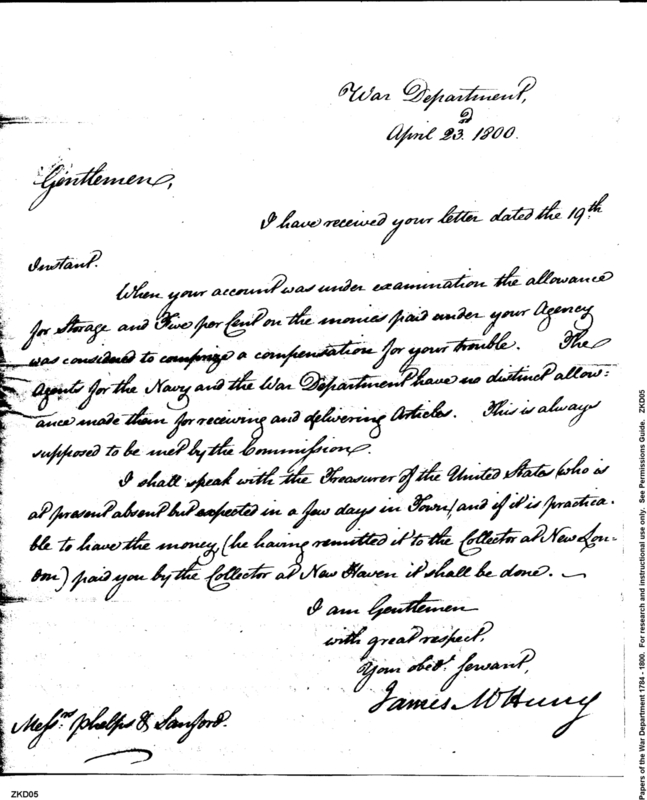 War Department,
April 23.d 1800.
Gentlemen,
I have received your letter dated the 19th
Instant.
When your account was under examination the allowance
for Storage and Five per Cent on the monies paid under your Agency
was considered to comprize a compensation for your trouble. The
Agents for the Navy and the War Department have no distinct allow=
ance made them for receiving and delivering Articles. This is always
supposed to be met by the Commission.
I shall speak with the Treasurer of the United States (who is
at present absent but expected in a few days in Town) and if it is practica=
ble to have the money (he having remitted it to the Collector at New Lon=
don) paid you by the Collector at New Haven it shall be done.
I am Gentlemen
with great respect,
Your obedt. Servant,
James McHenry
Messrs. Phelps & Sanford.
ZKD05
Papers of the War Department 1784 - 1800. For research and instructional use only. See Permissions Guide. ZKD05